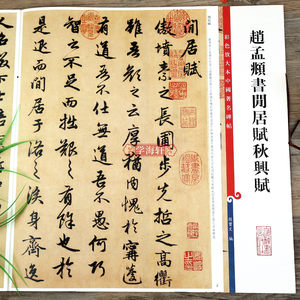 彩色放大本中國著名碑帖
趙孟頫書閒居賦秋興賦
孫寶文 編
閒居賦
傲墳素之長圃步先哲之高衢
雖吾顏之云厚猶内愧於甯蘧
有道吾不仕無道吾不愚何巧
智之不足而拙艱之有餘也於
是退而閒居于洛之涘身齊逸
学海轩